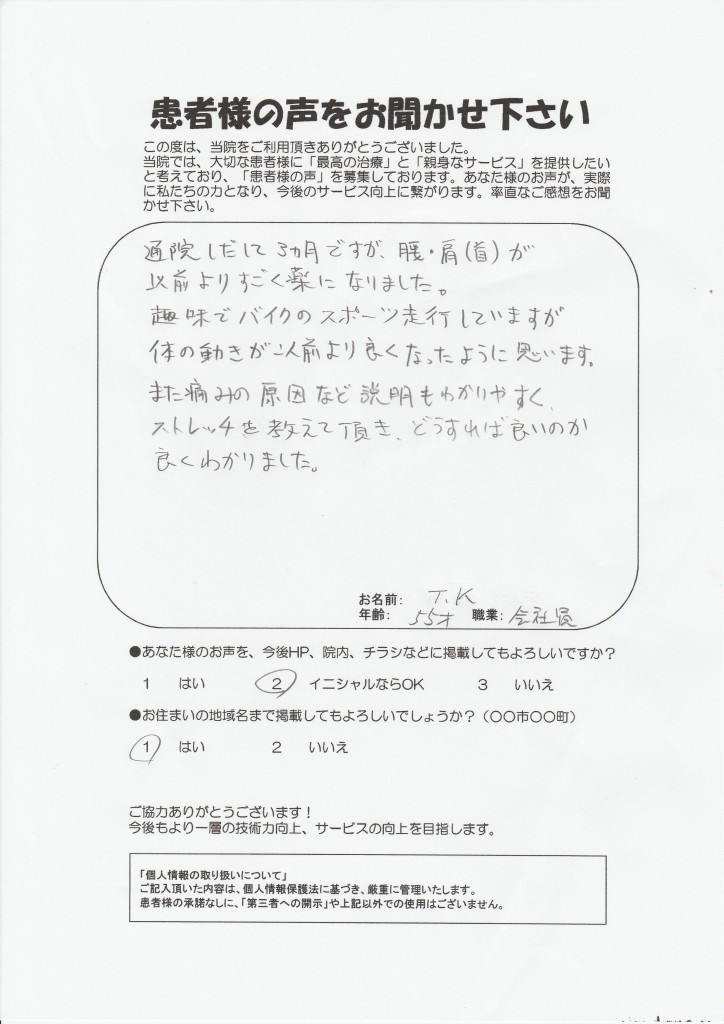 患者様の声をお聞かせ下さい
この度は、当院をご利用頂きありがとうございました。
当院では、大切な患者様に「最高の治療」と「親身なサービス」を提供したい
と考えており、「患者様の声」を募集しております。あなた様のお声が、実際
に私たちの力となり、今後のサービス向上に繋がります。率直なご感想をお聞
かせ下さい。
通院しだして3ヵ月ですが、腰・肩(首)が
以前よりすごく薬になりました。
趣味でバイクのスポーツ走行していますが
体の動きが以前より良くなったように思います。
また痛みの原因など説明もわかりやすく、
ストレッチを教えて頂き、どうすれば良いのか
良くわかりました。
お名前: T.K
年齢: 55才 職業: 会社員
●あなた様のお声を、今後HP、院内、チラシなどに掲載してもよろしいですか?
1 はい 2 イニシャルならOK 3 いいえ
●お住まいの地域名まで掲載してもよろしいでしょうか?(〇〇市〇〇町)
1 はい 2 いいえ
ご協力ありがとうございます!
今後もより一層の技術力向上、サービスの向上を目指します。
「個人情報の取り扱いについて」
ご記入頂いた内容は、個人情報保護法に基づき、厳重に管理いたします。
患者様の承諾なしに、「第三者への開示」や上記以外での使用はございません。